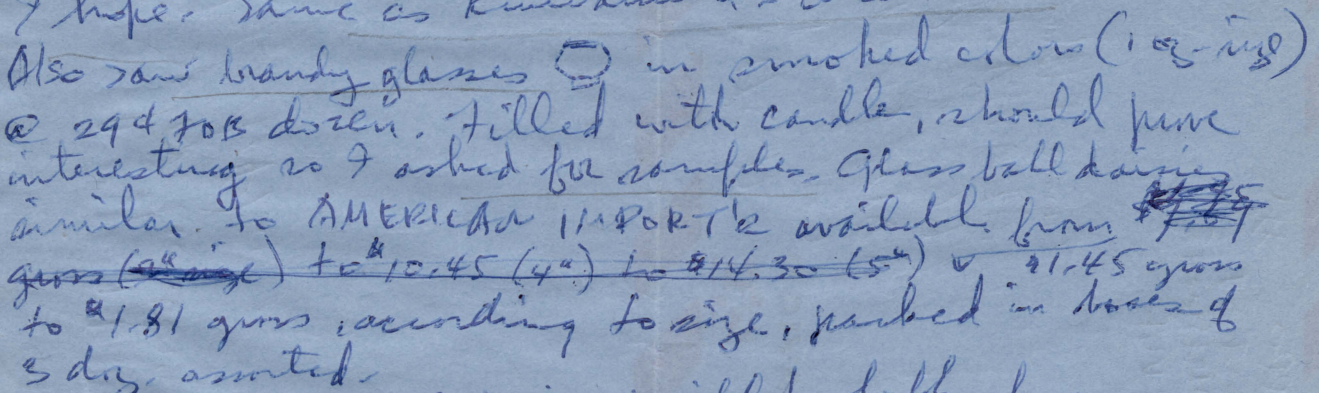 I hope. Same as
Also saw brandy glasses in smoked colors (1 oz-size)
@ 29¢ FOB dozen. Filled with candle, should prove
interesting so I asked for samples. Glass ball daisies
similar to AMERICAN IMPORT'R available from
gross (2" size) to $10.45 (4") to $14.30 (5") $1.45 gross
to $1.81 gross, according to size, packed in boxes of
3 doz. assorted.